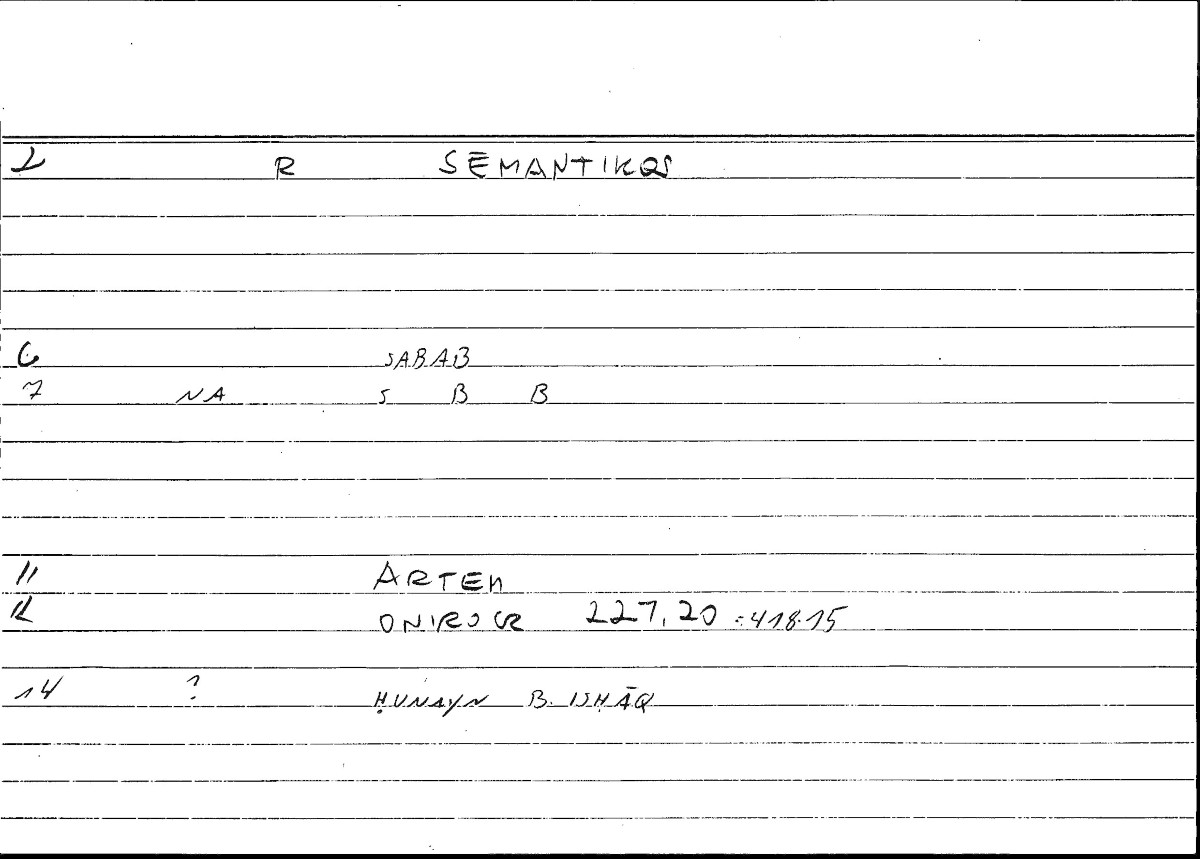 2 R SĒMANTIKOS
6 SABAB
7 NA S B B
11 ARTEM
12 ONIROCR 227,20 =418.15
14 ? ḤUNAYN B. ISḤĀQ